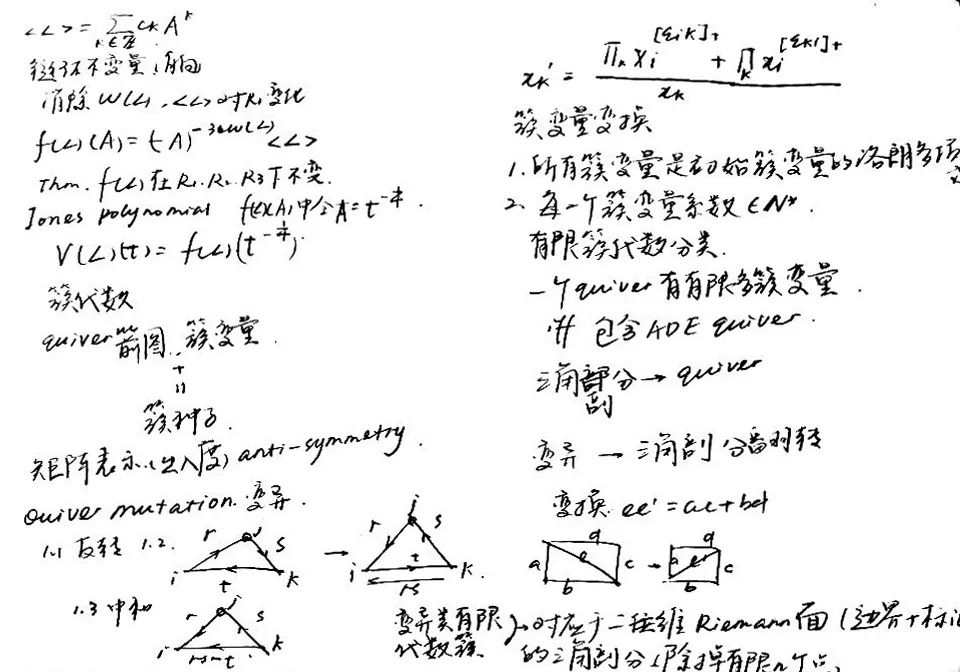 <L> = Σ_{k∈Z} c_k A^k
链环不变量,有向
消除 w(L), <L>对R1变化
f(L)(A) = (-A)^{-3w(L)} <L>
Thm. f(L)在R1.R2.R3下不变.
Jones polynomial f(L)(A)中令A=t^{-1/4}
V(L)(t) = f(L)(t^{-1/4}).
簇代数
quiver 箭图. 簇变量.
+
=
簇种子.
矩阵表示.(出入度) anti-symmetry.
Quiver mutation. 变异.
1.1 反转 1.2.
r j s
i t k
→
j
r s
i t k.
rs
1.3 中和
j s
i rs-t k
x_k' = (∏_k x_i^{[ε_ik]+} + ∏_k x_i^{[ε_ki]+}) / x_k
簇变量变换
1. 所有簇变量是初始簇变量的洛朗多项式
2. 每一个簇变量系数∈N*.
有限簇代数分类.
一个quiver有有限多簇变量.
iff 包含ADE quiver.
三角部分→quiver
剖
变异 → 三角剖分翻转
变换. ee' = ac+bd
a d e c b → d a e' c b
变异类有限
代数簇
对应于二维Riemann面(边界+标记
的三角剖分,除掉有限n个点.